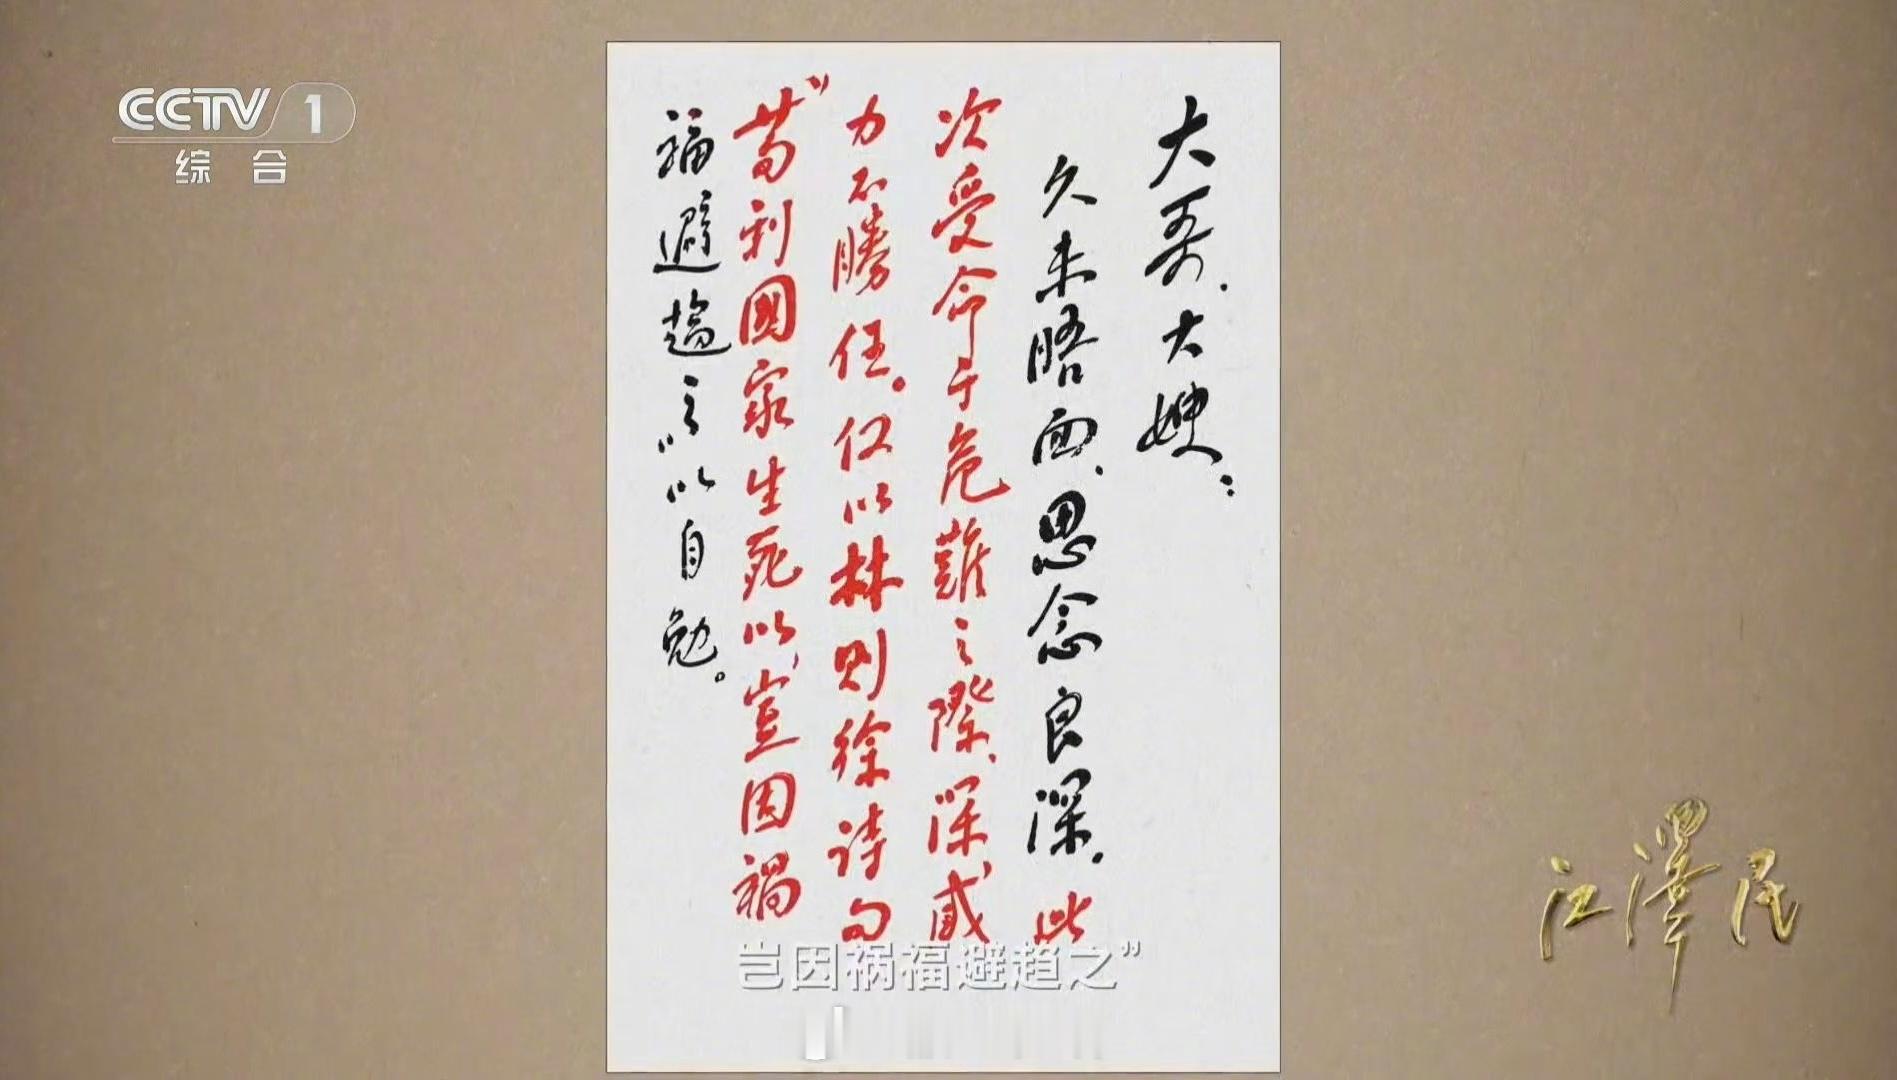 CCTV 1
综合
大哥.大嫂:
久未晤面、思念良深.此
次受命于危難之際、深感
力不勝任。仅以林则徐诗句
“苟利國家生死以,豈因禍
福避趨之”以自勉。
岂因祸福避趋之”
江澤民